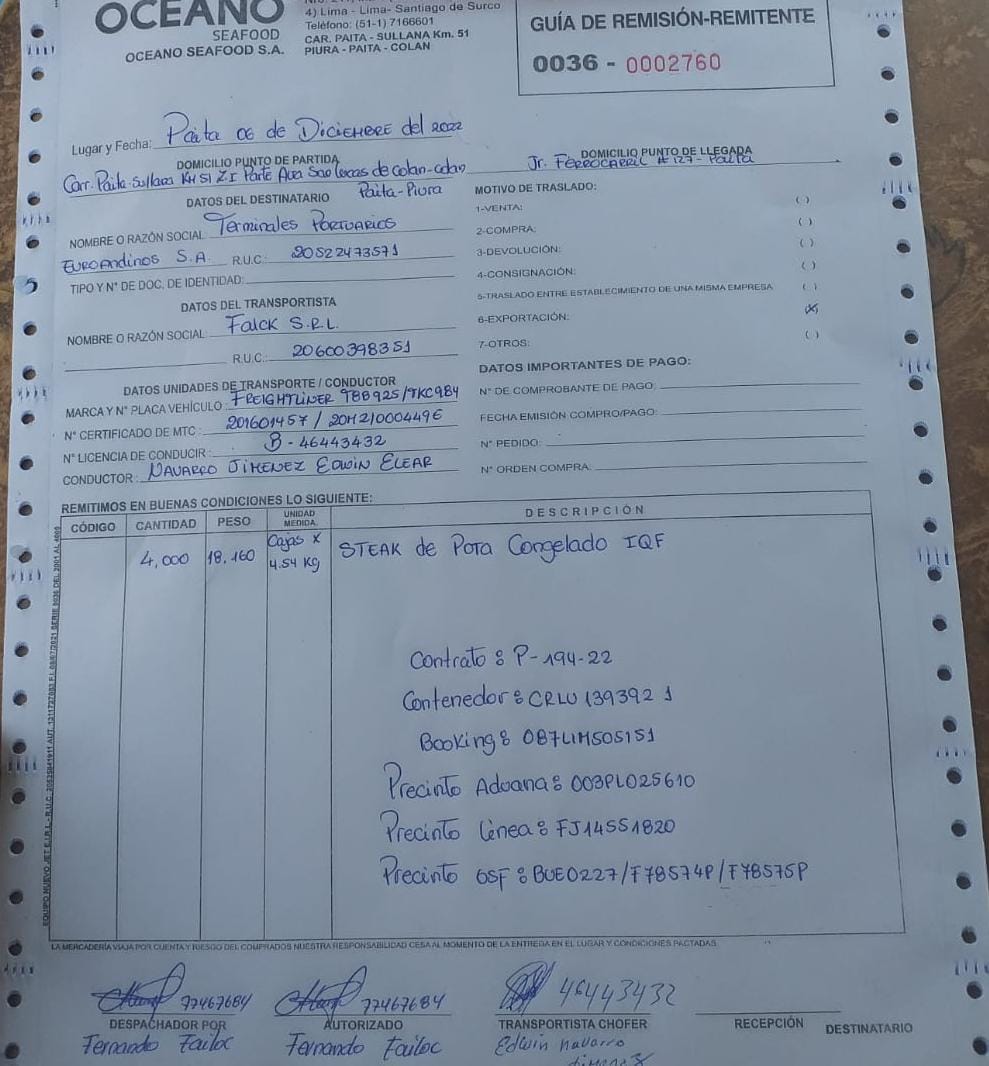 OCEANO
SEAFOOD
OCEANO SEAFOOD S.A.
4) Lima - Lima- Santiago de Surco
Teléfono: (51-1) 7166601
CAR. PAITA - SULLANA Km. 51
PIURA - PAITA - COLAN
GUÍA DE REMISIÓN-REMITENTE
0036 - 0002760
Lugar y Fecha: Paita 06 de Diciembre del 2022
DOMICILIO PUNTO DE PARTIDA
Carr. Paita-Sullana KM 51 Z I Parte Ava San Lucas de Colan-Colan
Paita-Piura
DOMICILIO PUNTO DE LLEGADA
Jr. Ferrocarril # 127- Paita
DATOS DEL DESTINATARIO
NOMBRE O RAZÓN SOCIAL: Terminales Portuarios
EuroAndinos S.A. R.U.C.: 20522473571
TIPO Y N° DE DOC. DE IDENTIDAD:
DATOS DEL TRANSPORTISTA
NOMBRE O RAZÓN SOCIAL: Falck S.R.L.
R.U.C.: 20600398351
DATOS UNIDADES DE TRANSPORTE / CONDUCTOR
MARCA Y N° PLACA VEHÍCULO: FREIGHTLINER TBB925/TKC984
N° CERTIFICADO DE MTC: 201601457 / 20M21000449E
N° LICENCIA DE CONDUCIR: B - 46443432
CONDUCTOR: NAVARRO JIMENEZ EDWIN ELEAR
MOTIVO DE TRASLADO:
1-VENTA: ( )
2-COMPRA: ( )
3-DEVOLUCIÓN: ( )
4-CONSIGNACIÓN: ( )
5-TRASLADO ENTRE ESTABLECIMIENTO DE UNA MISMA EMPRESA ( )
6-EXPORTACIÓN: (X)
7-OTROS: ( )
DATOS IMPORTANTES DE PAGO:
N° DE COMPROBANTE DE PAGO:
FECHA EMISIÓN COMPRO/PAGO:
N° PEDIDO:
N° ORDEN COMPRA:
REMITIMOS EN BUENAS CONDICIONES LO SIGUIENTE:
CÓDIGO CANTIDAD PESO UNIDAD MEDIDA DESCRIPCIÓN
4,000 18.160 Cajas x 4.54 Kg STEAK de Pota Congelado IQF
Contrato: P-194-22
Contenedor: CRLU 139392 1
Booking: 087LIM505151
Precinto Aduana: 003PL025610
Precinto Línea: FJ14551820
Precinto OSF: BUE0227/F78574P/F78575P
LA MERCADERÍA VIAJA POR CUENTA Y RIESGO DEL COMPRADOS NUESTRA RESPONSABILIDAD CESA AL MOMENTO DE LA ENTREGA EN EL LUGAR Y CONDICIONES PACTADAS
77467684 77467684 46443432
DESPACHADOR POR AUTORIZADO TRANSPORTISTA CHOFER RECEPCIÓN DESTINATARIO
Fernando Failoc Fernando Failoc Edwin navarro
Jimenez